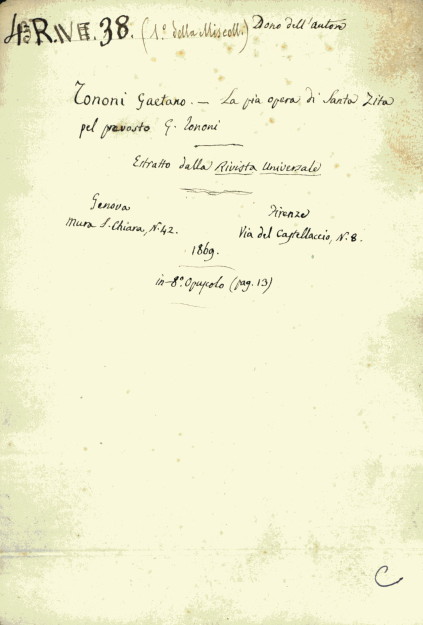 R.VI. 38. (1º. della Miscell.) Dono dell'autore
Tononi Gaetano. — La pia opera di Santa Zita
pel prevosto G. Tononi
Estratto dalla Rivista Universale
Genova
Mura S. Chiara, N. 42.
Firenze
Via del Castellaccio, N. 8.
1869.
in-8º. Opuscolo (pag. 13)
C